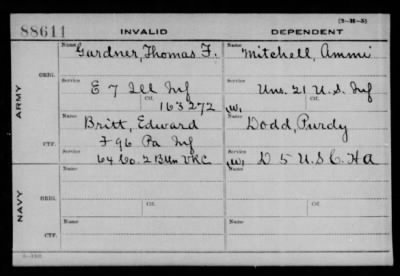 (3-H-5)
88611 INVALID DEPENDENT
Name Gardner, Thomas F. Name Mitchell, Ammi
ARMY
ORIG.
Service E 7 Ill Inf Service Uns. 21 U.S. Inf
Ctf. 163272 Ctf. (W)
Name Britt, Edward Name Dodd, Purdy
F 96 Pa Inf
CTF. Service 64 Co. 2 Btln VRC Service (W) D 5 U S C H A
NAVY
Name Name
ORIG. Ctf. Ctf.
Name Name
CTF.